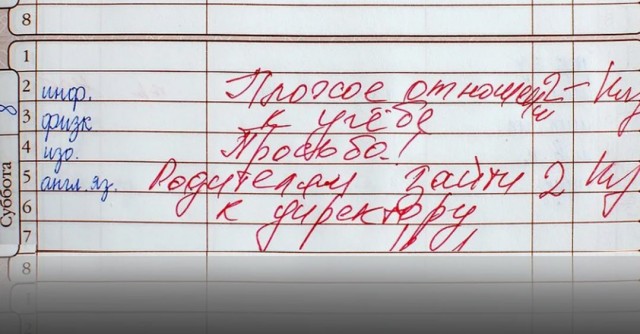 8
1
2 инф. Плохое отношен 2-
3 физк к учёбе
4 изо. Просьба!
Суббота
5 англ. яз. Родителям зайти 2
6 к директору
7
8